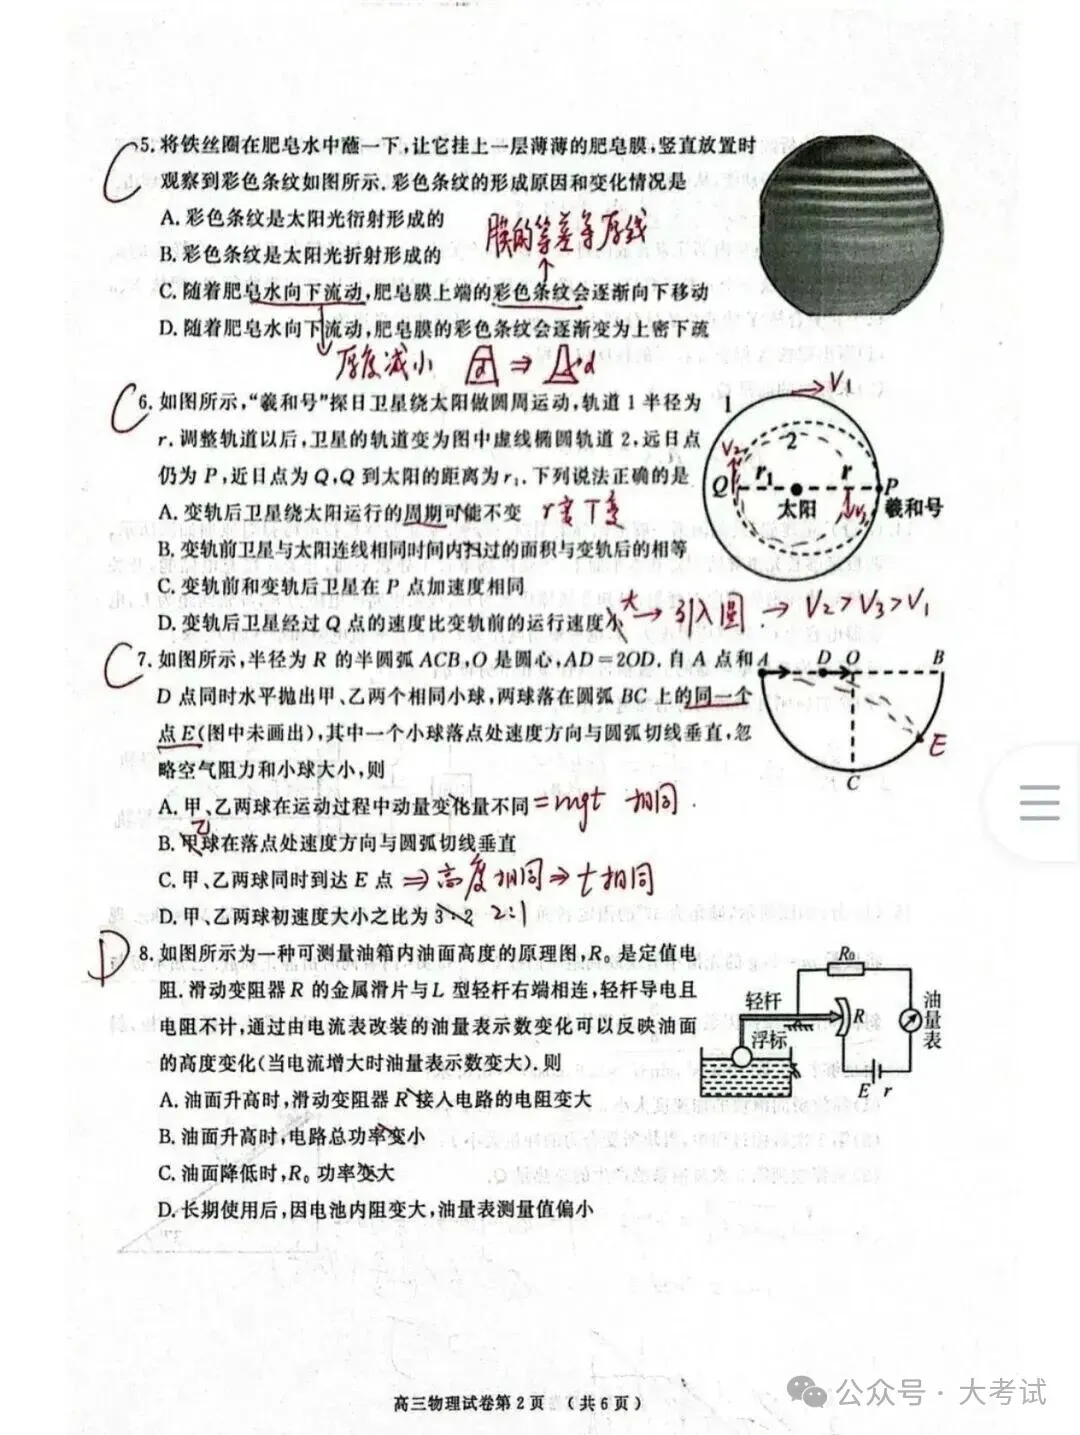 C
5. 将铁丝圈在肥皂水中蘸一下,让它挂上一层薄薄的肥皂膜,竖直放置时
观察到彩色条纹如图所示.彩色条纹的形成原因和变化情况是
A. 彩色条纹是太阳光衍射形成的
膜的等差等厚线
B. 彩色条纹是太阳光折射形成的
C. 随着肥皂水向下流动,肥皂膜上端的彩色条纹会逐渐向下移动
D. 随着肥皂水向下流动,肥皂膜的彩色条纹会逐渐变为上密下疏
厚度减小 d ⇒ d
C
6. 如图所示,“羲和号”探日卫星绕太阳做圆周运动,轨道 1 半径为
r. 调整轨道以后,卫星的轨道变为图中虚线椭圆轨道 2,远日点
仍为 P,近日点为 Q,Q 到太阳的距离为 r₁. 下列说法正确的是
A. 变轨后卫星绕太阳运行的周期可能不变
r变 T变
B. 变轨前卫星与太阳连线相同时间内扫过的面积与变轨后的相等
C. 变轨前和变轨后卫星在 P 点加速度相同
D. 变轨后卫星经过 Q 点的速度比变轨前的运行速度小
大 → 引入圆 → V₂>V₃>V₁
1
V₁
2
V₂
Q
r₁
r
P
太阳
V₃
羲和号
C
7. 如图所示,半径为 R 的半圆弧 ACB,O 是圆心,AD=2OD. 自 A 点和
D 点同时水平抛出甲、乙两个相同小球,两球落在圆弧 BC 上的同一个
点 E(图中未画出),其中一个小球落点处速度方向与圆弧切线垂直,忽
略空气阻力和小球大小,则
A. 甲、乙两球在运动过程中动量变化量不同
=mgt 相同.
乙
B. 甲球在落点处速度方向与圆弧切线垂直
C. 甲、乙两球同时到达 E 点
⇒高度相同⇒t相同
D. 甲、乙两球初速度大小之比为 3∶2
2:1
A
D
O
B
E
C
D
8. 如图所示为一种可测量油箱内油面高度的原理图,R₀ 是定值电
阻.滑动变阻器 R 的金属滑片与 L 型轻杆右端相连,轻杆导电且
电阻不计,通过由电流表改装的油量表示数变化可以反映油面
的高度变化(当电流增大时油量表示数变大).则
A. 油面升高时,滑动变阻器 R 接入电路的电阻变大
B. 油面升高时,电路总功率变小
C. 油面降低时,R₀ 功率变大
D. 长期使用后,因电池内阻变大,油量表测量值偏小
R₀
轻杆
R
油量表
浮标
E
r
高三物理试卷第 2 页 (共 6 页)
公众号·大考试